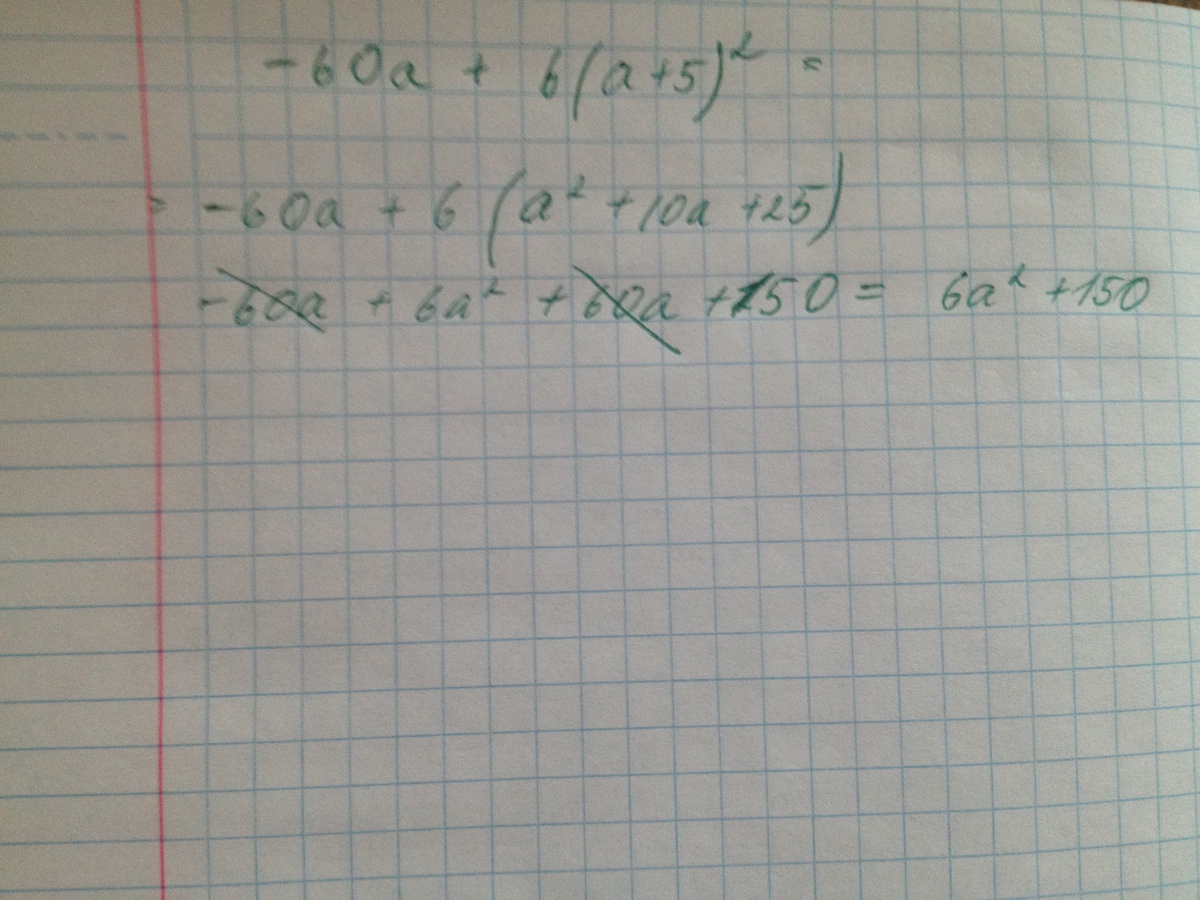 -60a + 6(a+5)² =
= -60a + 6(a² + 10a + 25)
-60a + 6a² + 60a + 150 = 6a² + 150